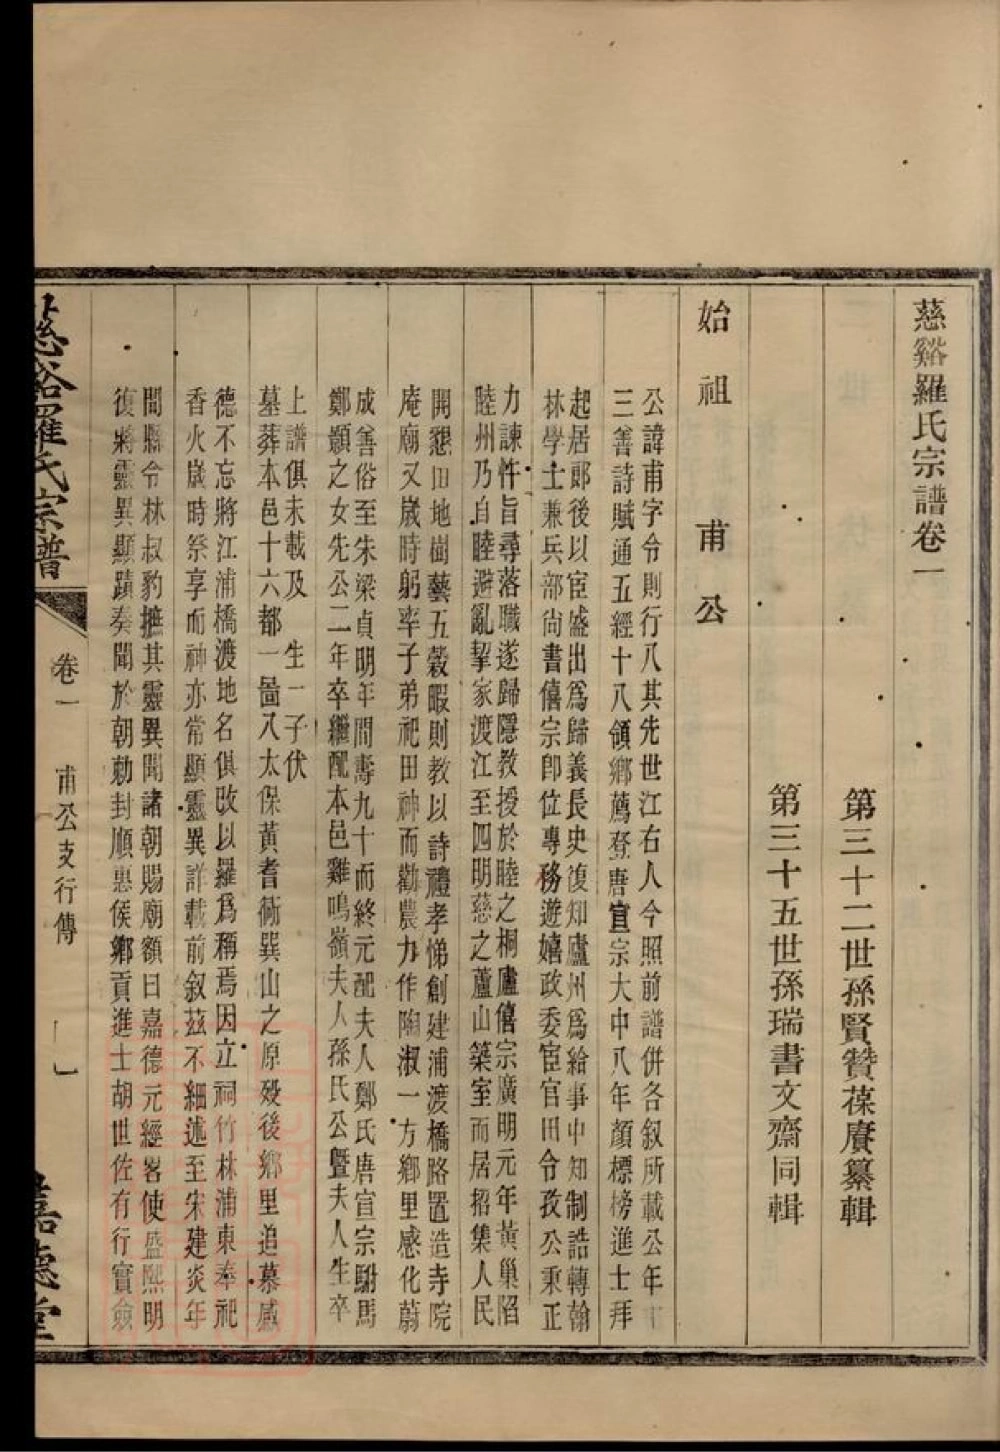 慈谿羅氏宗譜卷一
第三十二世孫賢贊葆賡纂輯
第三十五世孫瑞書文齋同輯
始祖 甫公
公諱甫字令則行八其先世江右人今照前譜併各叙所載公年十
三善詩賦通五經十八領鄉薦登唐宣宗大中八年顏標榜進士拜
起居郎後以宦盛出爲歸義長史復知廬州爲給事中知制誥轉翰
林學士兼兵部尚書僖宗卽位專務遊嬉政委宦官田令孜公秉正
力諫忤旨尋落職遂歸隱教授於睦之桐廬僖宗廣明元年黃巢陷
睦州乃自睦避亂挈家渡江至四明慈之蘆山築室而居招集人民
開懇田地樹藝五穀暇則教以詩禮孝悌創建浦渡橋路置造寺院
庵廟又歲時躬率子弟祀田神而勸農力作陶淑一方鄉里感化蔚
成善俗至朱梁貞明年間壽九十而終元配夫人鄭氏唐宣宗駙馬
鄭顥之女先公二年卒繼配本邑雞鳴嶺夫人孫氏公曁夫人生卒
上譜俱未載及 生一子伏
墓葬本邑十六都一啚八太保黃耆衕巽山之原殁後鄉里追慕感
德不忘將江浦橋渡地名俱改以羅爲稱焉因立祠竹林浦東奉祀
香火歲時祭享而神亦常顯靈異詳載前叙茲不細述至宋建炎年
間縣令林叔豹摭其靈異聞諸朝賜廟額曰嘉德元經畧使盛熙明
復將靈異顯蹟奏聞於朝勅封順惠侯鄉貢進士胡世佐有行實僉
慈谿羅氏宗譜 卷一 甫公支行傳 一 嘉德堂